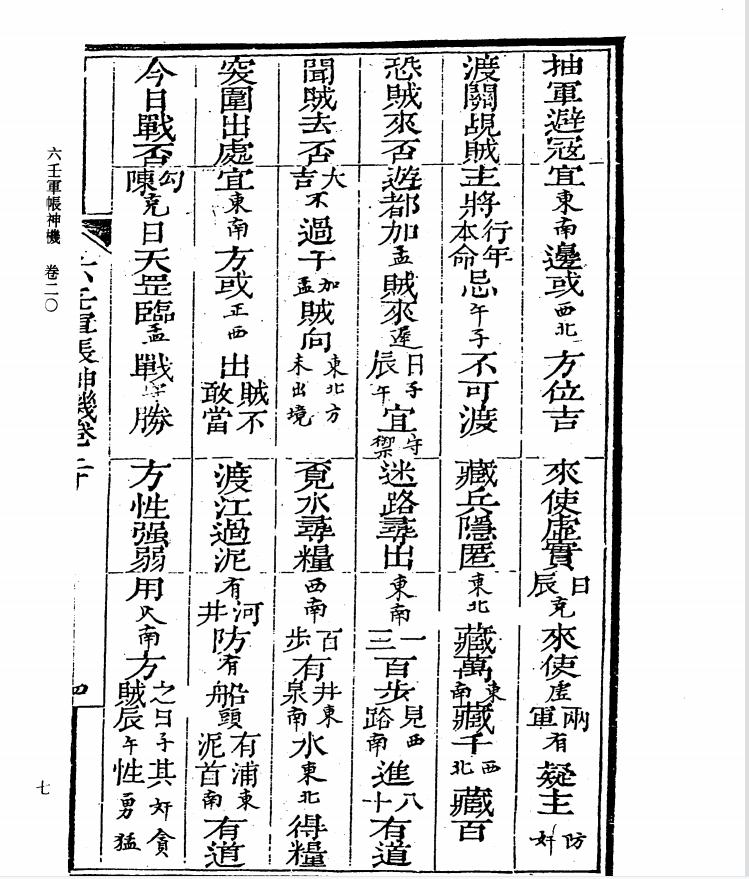 抽軍避寇 宜東南邊或西北方位吉 來使虛實 日辰克來使虛兩軍有疑主防奸
渡關覘賊 主將行年本命忌午子不可渡 藏兵隱匿 東北藏萬東南藏千西北藏百
恐賊來否 遊都加孟賊來遲日子辰午宜守禦 迷路尋出 東南一三百步見西路南進八十有道
聞賊去否 大吉不過干加孟賊向東北方未出境 覓水尋糧 西南百步有井東泉南水東北得糧
突圍出處 宜東南方或正西出賊不敢當 渡江過泥 有河井防有船頭有浦東泥首南有道
今日戰否 勾陳克日天罡臨孟戰勝 方性强弱 用南方之日子賊辰午性其奸貪勇猛
六壬軍帳神機卷二十
四
六壬軍帳神機 卷二〇
七